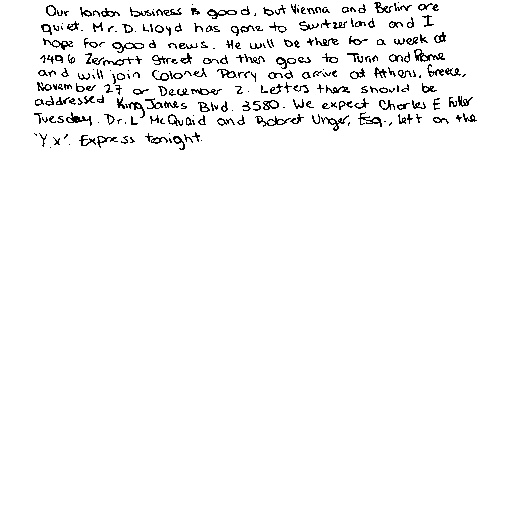 Our london business is good, but Vienna and Berlin are
quiet. Mr. D. Lloyd has gone to Switzerland and I
hope for good news. He will be there for a week at
1496 Zermott Street and then goes to Turin and Rome
and will join Colonel Parry and arrive at Athens, Greece,
November 27 or December 2. Letters there should be
addressed King James Blvd. 3580. We expect Charles E Fuller
Tuesday. Dr. L McQuaid and Bobret Unger, Esq., left on the
'Y.X'. Express tonight.